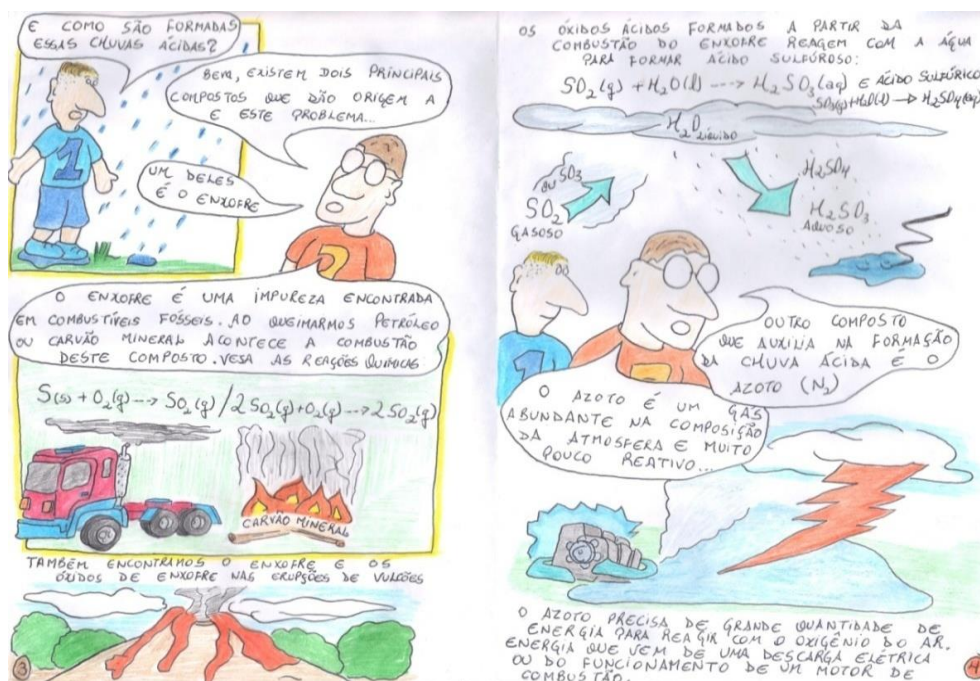 E COMO SÃO FORMADAS
ESSAS CHUVAS ÁCIDAS?
BEM, EXISTEM DOIS PRINCIPAIS
COMPOSTOS QUE DÃO ORIGEM A
E ESTE PROBLEMA...
UM DELES
É O ENXOFRE
1
2
O ENXOFRE É UMA IMPUREZA ENCONTRADA
EM COMBUSTÍVEIS FÓSSEIS. AO QUEIMARMOS PETRÓLEO
OU CARVÃO MINERAL ACONTECE A COMBUSTÃO
DESTE COMPOSTO. VEJA AS REAÇÕES QUÍMICAS:
S(s) + O₂(g) ---> SO₂(g) / 2SO₂(g) + O₂(g) ---> 2SO₂(g)
CARVÃO MINERAL
TAMBÉM ENCONTRAMOS O ENXOFRE E OS
ÓXIDOS DE ENXOFRE NAS ERUPÇÕES DE VULCÕES
3
OS ÓXIDOS ÁCIDOS FORMADOS A PARTIR DA
COMBUSTÃO DO ENXOFRE REAGEM COM A ÁGUA
PARA FORMAR ÁCIDO SULFÚROSO:
SO₂(g) + H₂O(l) ---> H₂SO₃(aq) E ÁCIDO SULFÚRICO
SO₃(g)+H₂O(l) --> H₂SO₄(aq)
H₂O LÍQUIDO
OU SO₃
SO₂
GASOSO
H₂SO₄
H₂SO₃
AQUOSO
1
2
OUTRO COMPOSTO
QUE AUXILIA NA FORMAÇÃO
DA CHUVA ÁCIDA É O
AZOTO (N₂)
O AZOTO É UM GÁS
ABUNDANTE NA COMPOSIÇÃO
DA ATMOSFERA E MUITO
POUCO REATIVO...
O AZOTO PRECISA DE GRANDE QUANTIDADE DE
ENERGIA PARA REAGIR COM O OXIGÊNIO DO AR.
ENERGIA QUE VEM DE UMA DESCARGA ELÉTRICA
OU DO FUNCIONAMENTO DE UM MOTOR DE
COMBUSTÃO.
4